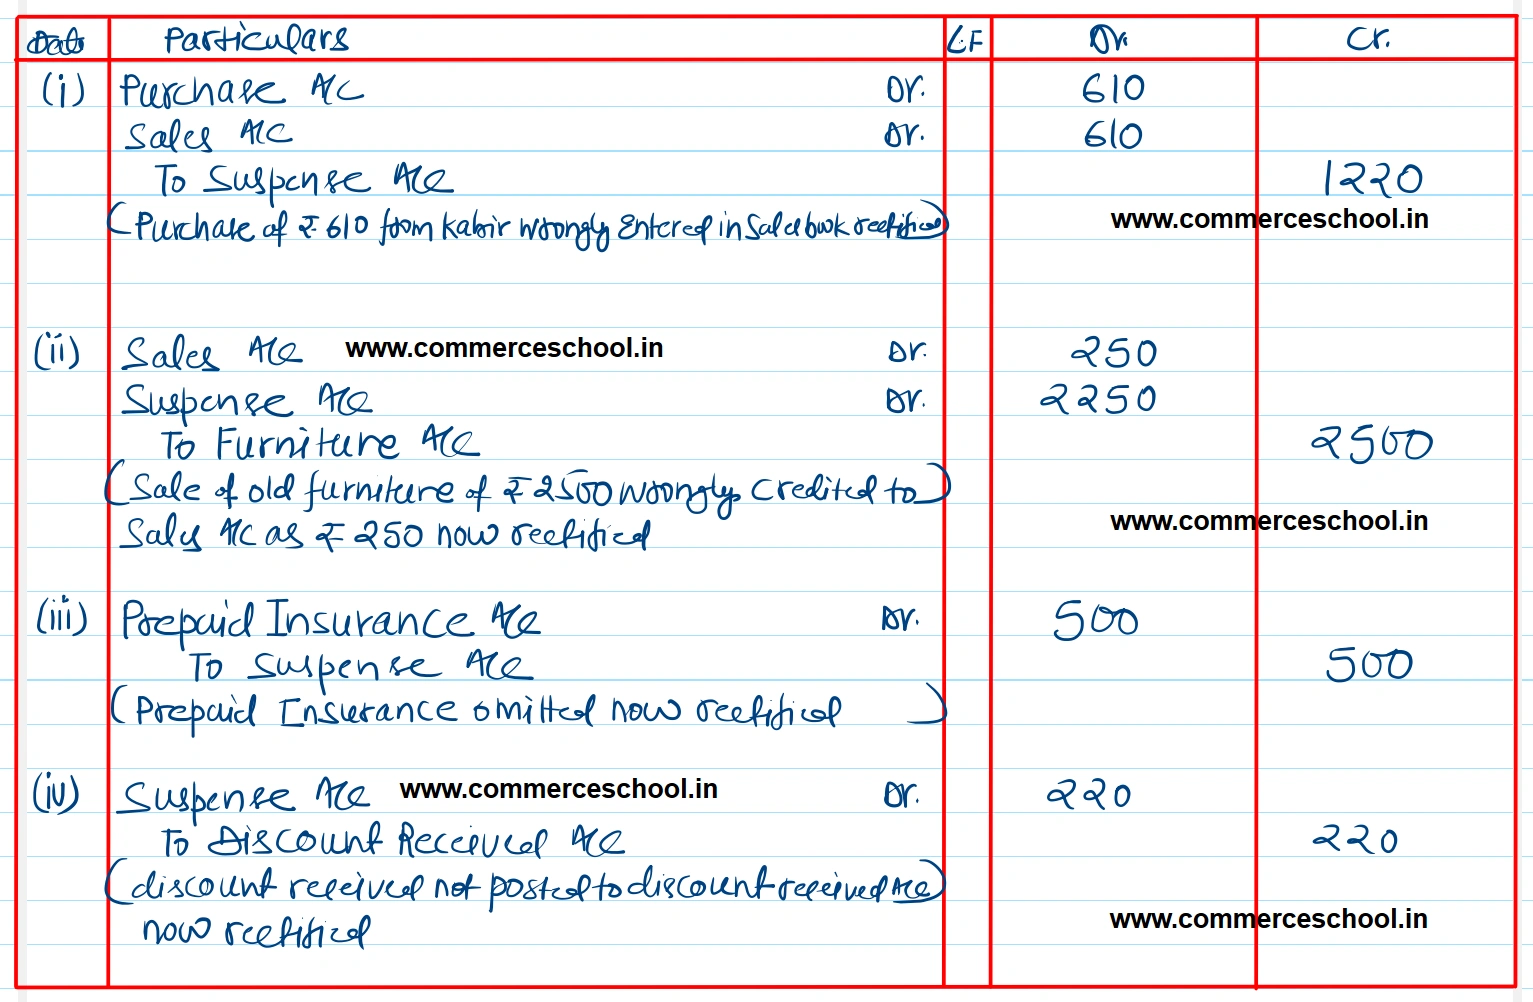 Date Particulars L.F Dr. Cr.
(i) Purchase A/C Dr. 610
Sales A/C Dr. 610
To Suspense A/C 1220
(Purchase of ₹ 610 from Kabir wrongly Entered in Sales book rectified)
www.commerceschool.in
(ii) Sales A/C www.commerceschool.in Dr. 250
Suspense A/C Dr. 2250
To Furniture A/C 2500
(Sale of old furniture of ₹ 2500 wrongly credited to)
Sales A/C as ₹ 250 now rectified
www.commerceschool.in
(iii) Prepaid Insurance A/C Dr. 500
To Suspense A/C 500
(Prepaid Insurance omitted now rectified)
(iv) Suspense A/C www.commerceschool.in Dr. 220
To Discount Received A/C 220
(discount received not posted to discount received A/C)
now rectified
www.commerceschool.in